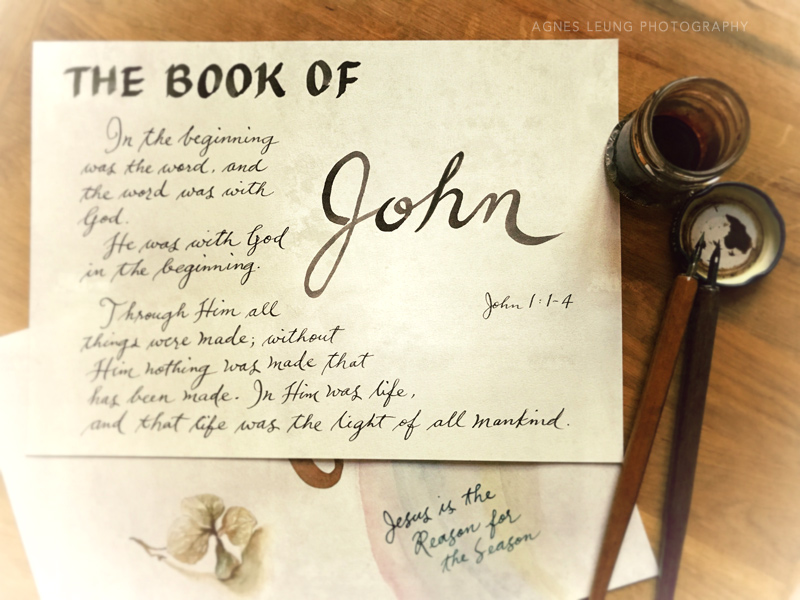 AGNES LEUNG PHOTOGRAPHY
THE BOOK OF
John
In the beginning
was the word, and
the word was with
God.
He was with God
in the beginning.
Through Him all
things were made; without
Him nothing was made that
has been made. In Him was life,
and that life was the light of all mankind.
John 1:1-4
Jesus is the
Reason for
the Season